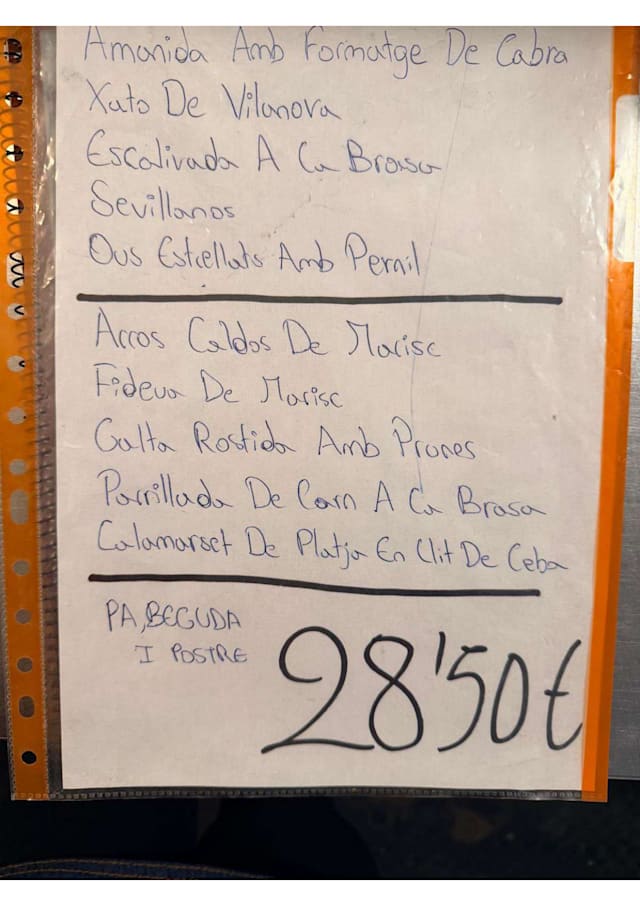 Amanida Amb Formatge De Cabra
Xato De Vilanova
Escalivada A La Brasa
Sevillanos
Ous Estrellats Amb Pernil
Arros Caldos De Marisc
Fideua De Marisc
Galta Rostida Amb Prunes
Parrillada De Carn A La Brasa
Calamarset De Platja En Llit De Ceba
PA, BEGUDA
I POSTRE
28'50€